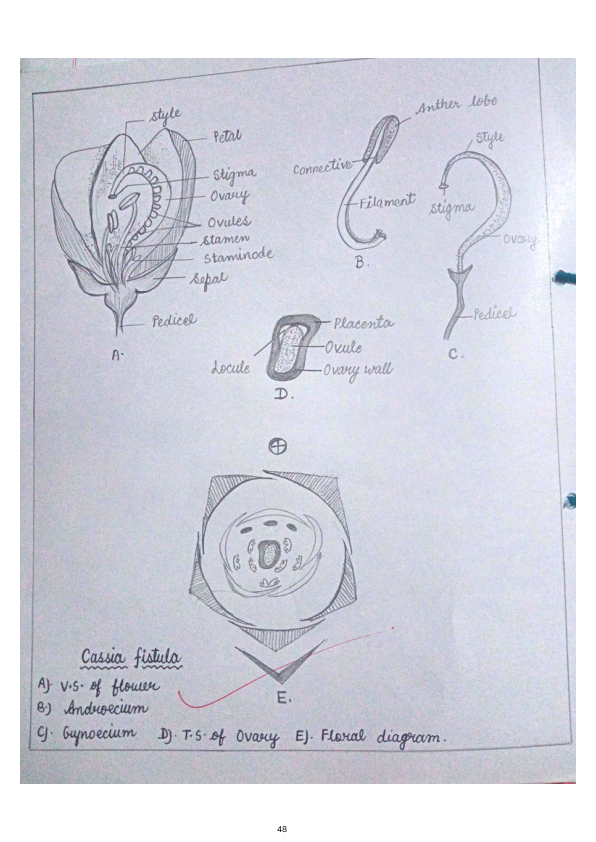 Style
Petal
Stigma
Ovary
Ovules
Stamen
Staminode
Sepal
Pedicel
A.
Anther lobe
Connective
Filament
B.
Style
Stigma
Ovary
Pedicel
C.
Placenta
Ovule
Locule
Ovary wall
D.
E.
Cassia fistula
A). V.S. of flower
B.) Androecium
C). Gynoecium D). T.S. of Ovary E). Floral diagram.
48